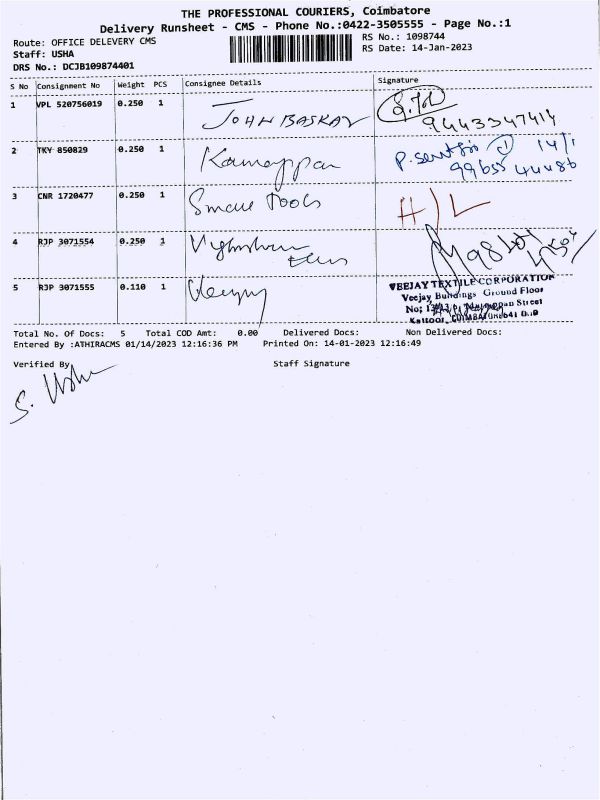 THE PROFESSIONAL COURIERS, Coimbatore
Delivery Runsheet - CMS - Phone No.:0422-3505555 - Page No.:1
Route: OFFICE DELEVERY CMS
RS No.: 1098744
Staff: USHA
RS Date: 14-Jan-2023
DRS No.: DCJB109874401
S No Consignment No Weight PCS Consignee Details Signature
1 VPL 520756019 0.250 1 JOHN BASKAR 9443347414
2 TKY 850829 0.250 1 14/1
99655 44486
3 CNR 1720477 0.250 1 Smart Tools H/L
4 RJP 3071554 0.250 1
5 RJP 3071555 0.110 1
VEEJAY TEXTILE CORPORATION
Veejay Buildings Ground Floor
Street
Total No. Of Docs: 5 Total COD Amt: 0.00 Delivered Docs: Non Delivered Docs:
Entered By :ATHIRACMS 01/14/2023 12:16:36 PM Printed On: 14-01-2023 12:16:49
Verified By Staff Signature
S. Usha